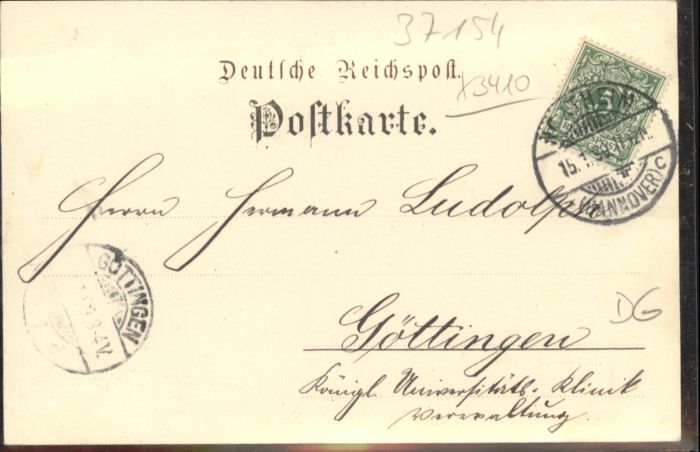 37154
Deutsche Reichspost.
x3410
Postkarte.
5
(HANNOVER) c
Herrn Hermann Ludolph
GÖTTINGEN
DG
Göttingen
Königl. Universitäts-Klinik
Verwaltung.